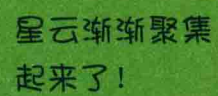 星云渐渐聚集
起来了！